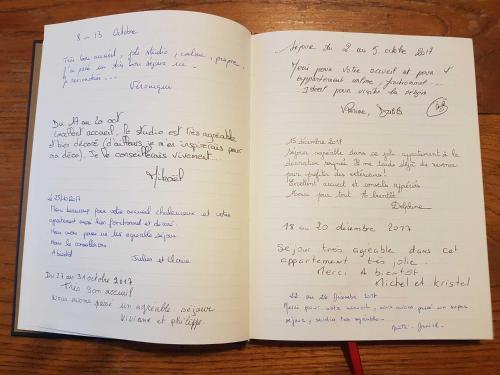 8 - 13 Octobre
Très bon accueil, joli studio, calme, propre,
J'ai passé un très bon séjour ici.
Je reviendrai...
Véronique
Du 17 au 20 oct
Excellent accueil, le studio est très agréable
et bien décoré (d'ailleurs je m'en inspirerais pour
ma déco). Je le conseillerais vivement...
Mikaël
Merci beaucoup pour votre accueil chaleureux et votre
apartement aussi bien fonctionnel et décoré.
Nous avons passé un très agréable séjour
Nous le conseillons
A bientôt
Julien et Claire
Du 27 au 31 octobre 2017
Très bon accueil
Nous avons passé un agréable séjour
Viviane et philippe
Séjour du 2 au 5 octobre 2017
Merci pour votre accueil et pour
appartement calme, fonctionnel...
Idéal pour visiter la région
15 décembre 2017
Séjour agréable dans ce joli appartement à la
décoration soignée. Il me tarde déjà de revenir
pour profiter des extérieurs!
Excellent accueil et conseils appréciés
Merci pour tout. A bientôt.
Delphine
18 au 20 décembre 2017
Séjour très agréable dans cet
appartement très jolie.
Merci. A bientôt
Michel et Kristel
22 au 24 Décembre 2017
Merci pour votre accueil, nous avons passé un super
séjour, studio très agréable.